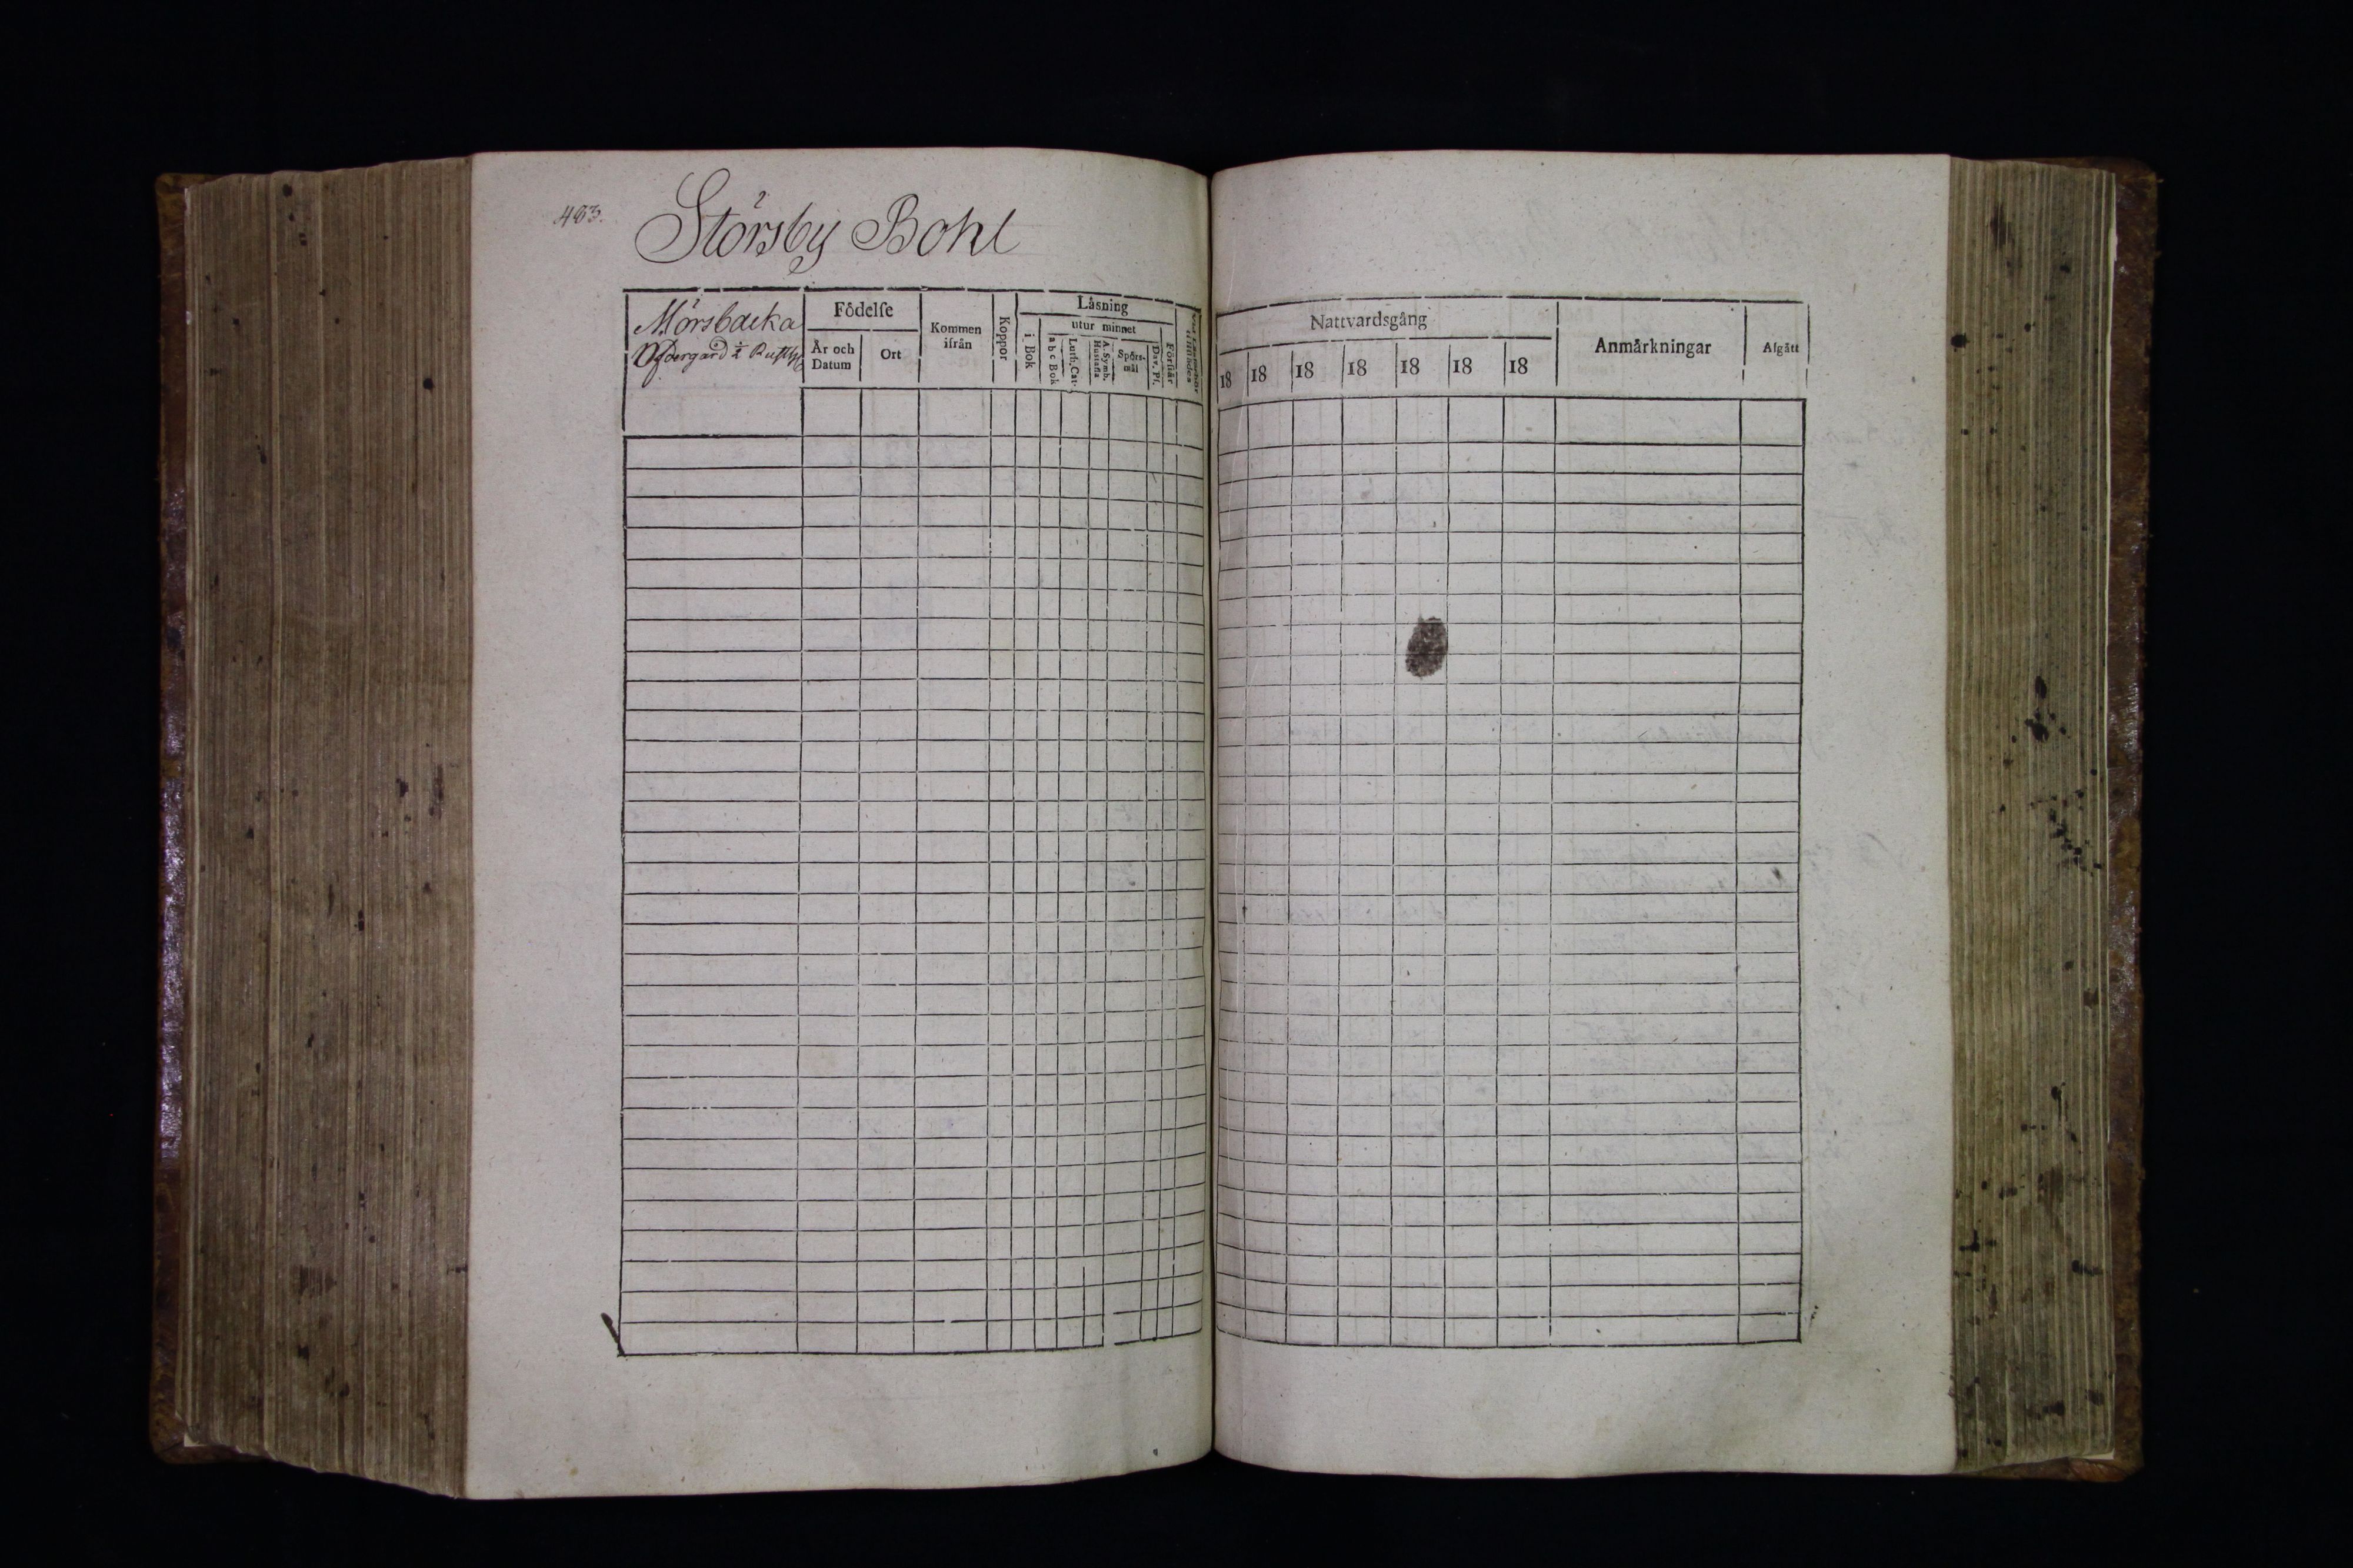 483.
Störsby Bohl
Mörsbacka
Födelſe
År och Datum
Ort
Kommen
ifrån
Koppor
Läsning
i Bok
utur minnet
a b c Bok
Luth. Cat.
A. Symb.
Huſtafla
Spörs-
mål
Dav. Pſ.
Förſtår
Nattvardsgång
18 18 18 18 18 18 18
Anmärkningar
Afgått